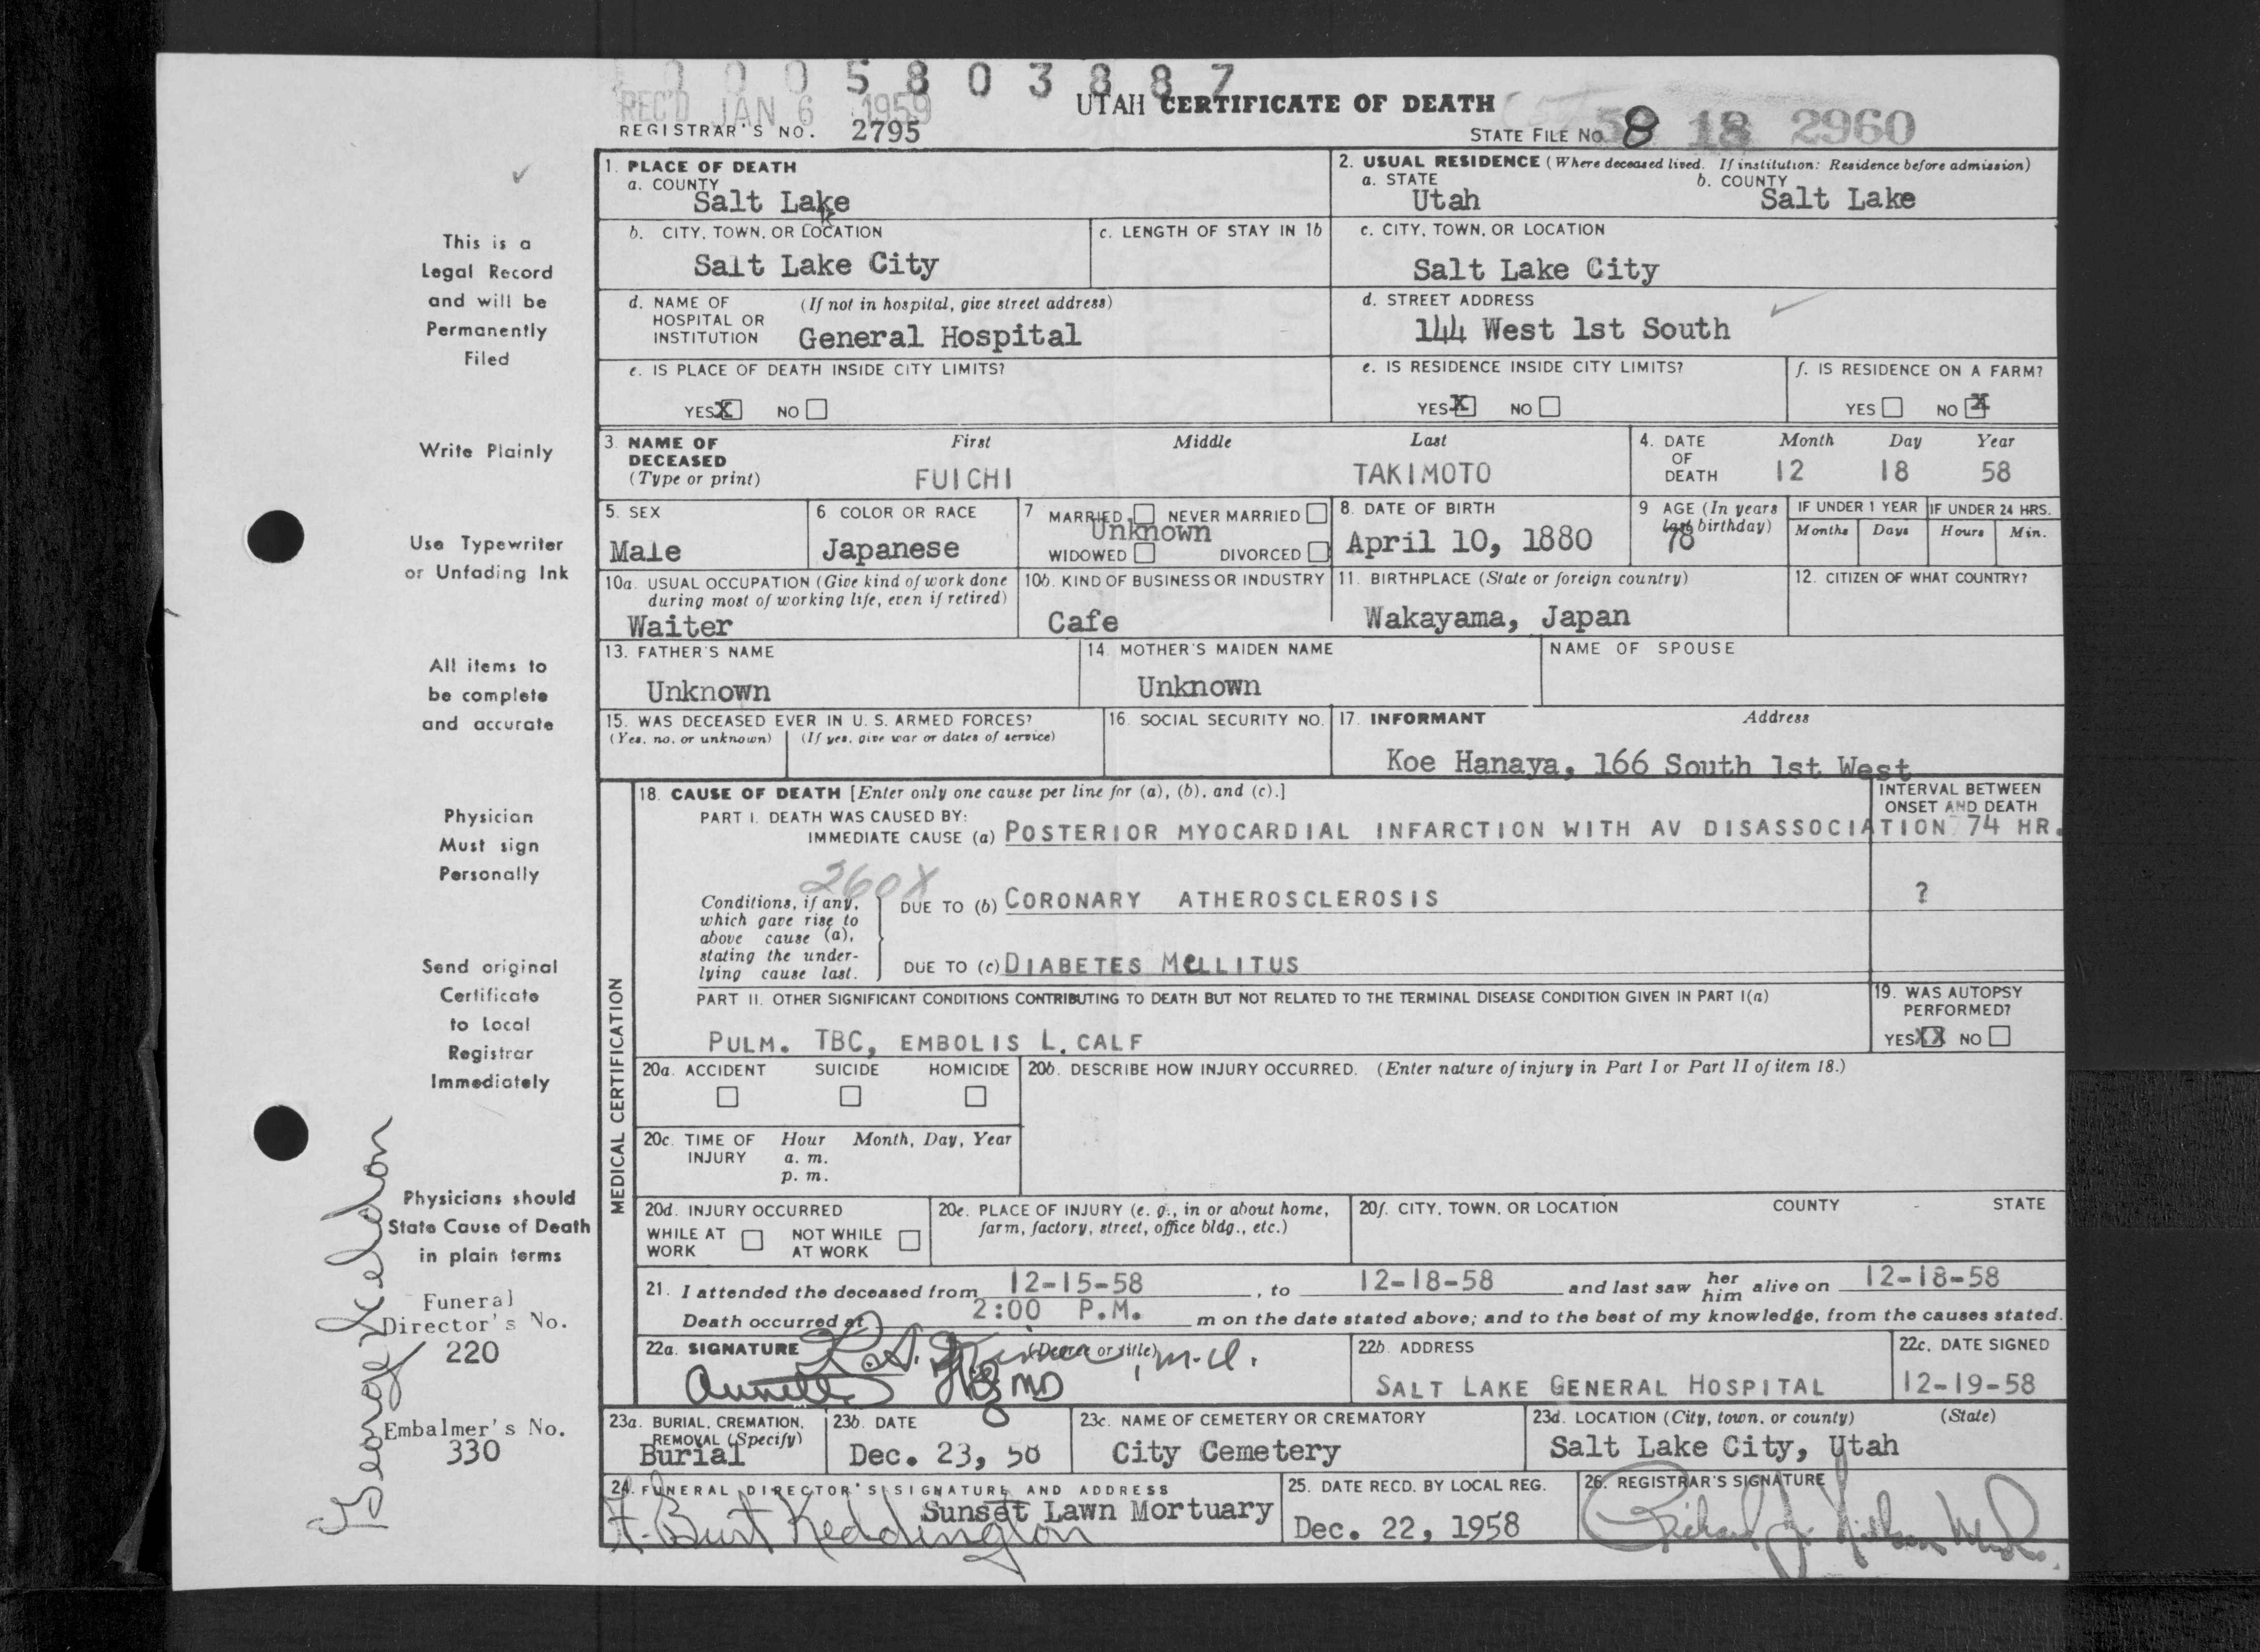 0005803887
REC'D JAN 6 1959
UTAH CERTIFICATE OF DEATH
REGISTRAR'S NO. 2795
STATE FILE No. 58 18 2960
8
This is a
Legal Record
and will be
Permanently
Filed
Write Plainly
Use Typewriter
or Unfading Ink
All items to
be complete
and accurate
Physician
Must sign
Personally
Send original
Certificate
to Local
Registrar
Immediately
Physicians should
State Cause of Death
in plain terms
Funeral
Director's No.
220
Embalmer's No.
330
George
1. PLACE OF DEATH
a. COUNTY
Salt Lake
b. CITY, TOWN, OR LOCATION
Salt Lake City
c. LENGTH OF STAY IN 1b
d. NAME OF HOSPITAL OR INSTITUTION (If not in hospital, give street address)
General Hospital
e. IS PLACE OF DEATH INSIDE CITY LIMITS?
YES X NO
2. USUAL RESIDENCE (Where deceased lived. If institution: Residence before admission)
a. STATE
Utah
b. COUNTY
Salt Lake
c. CITY, TOWN, OR LOCATION
Salt Lake City
d. STREET ADDRESS
144 West 1st South
e. IS RESIDENCE INSIDE CITY LIMITS?
YES X NO
f. IS RESIDENCE ON A FARM?
YES NO X
3. NAME OF DECEASED (Type or print)
First Middle Last
FUICHI TAKIMOTO
4. DATE OF DEATH
Month Day Year
12 18 58
5. SEX
Male
6. COLOR OR RACE
Japanese
7 MARRIED NEVER MARRIED
Unknown
WIDOWED DIVORCED
8. DATE OF BIRTH
April 10, 1880
9 AGE (In years last birthday)
78
IF UNDER 1 YEAR
Months Days
IF UNDER 24 HRS.
Hours Min.
10a. USUAL OCCUPATION (Give kind of work done during most of working life, even if retired)
Waiter
10b. KIND OF BUSINESS OR INDUSTRY
Cafe
11. BIRTHPLACE (State or foreign country)
Wakayama, Japan
12. CITIZEN OF WHAT COUNTRY?
13. FATHER'S NAME
Unknown
14. MOTHER'S MAIDEN NAME
Unknown
NAME OF SPOUSE
15. WAS DECEASED EVER IN U. S. ARMED FORCES?
(Yes, no, or unknown) (If yes, give war or dates of service)
16. SOCIAL SECURITY NO.
17. INFORMANT Address
Koe Hanaya, 166 South 1st West
MEDICAL CERTIFICATION
18. CAUSE OF DEATH [Enter only one cause per line for (a), (b), and (c).]
INTERVAL BETWEEN ONSET AND DEATH
PART I. DEATH WAS CAUSED BY:
IMMEDIATE CAUSE (a) POSTERIOR MYOCARDIAL INFARCTION WITH AV DISASSOCIATION 74 HR.
260X
Conditions, if any, which gave rise to above cause (a), stating the underlying cause last.
DUE TO (b) CORONARY ATHEROSCLEROSIS ?
DUE TO (c) DIABETES MELLITUS
PART II. OTHER SIGNIFICANT CONDITIONS CONTRIBUTING TO DEATH BUT NOT RELATED TO THE TERMINAL DISEASE CONDITION GIVEN IN PART I(a)
PULM. TBC, EMBOLIS L. CALF
19. WAS AUTOPSY PERFORMED?
YES XX NO
20a. ACCIDENT SUICIDE HOMICIDE
20b. DESCRIBE HOW INJURY OCCURRED. (Enter nature of injury in Part I or Part II of item 18.)
20c. TIME OF INJURY Hour Month, Day, Year
a. m.
p. m.
20d. INJURY OCCURRED
WHILE AT WORK NOT WHILE AT WORK
20e. PLACE OF INJURY (e. g., in or about home, farm, factory, street, office bldg., etc.)
20f. CITY, TOWN, OR LOCATION COUNTY STATE
21. I attended the deceased from 12-15-58, to 12-18-58 and last saw her him alive on 12-18-58
Death occurred at 2:00 P.M. m on the date stated above; and to the best of my knowledge, from the causes stated.
22a. SIGNATURE (Degree or title)
, M.D.
MD
22b. ADDRESS
SALT LAKE GENERAL HOSPITAL
22c. DATE SIGNED
12-19-58
23a. BURIAL, CREMATION, REMOVAL (Specify)
Burial
23b. DATE
Dec. 23, 58
23c. NAME OF CEMETERY OR CREMATORY
City Cemetery
23d. LOCATION (City, town, or county) (State)
Salt Lake City, Utah
24. FUNERAL DIRECTOR'S SIGNATURE AND ADDRESS
Sunset Lawn Mortuary
F. Burt Keddington
25. DATE RECD. BY LOCAL REG.
Dec. 22, 1958
26. REGISTRAR'S SIGNATURE
Richard J.